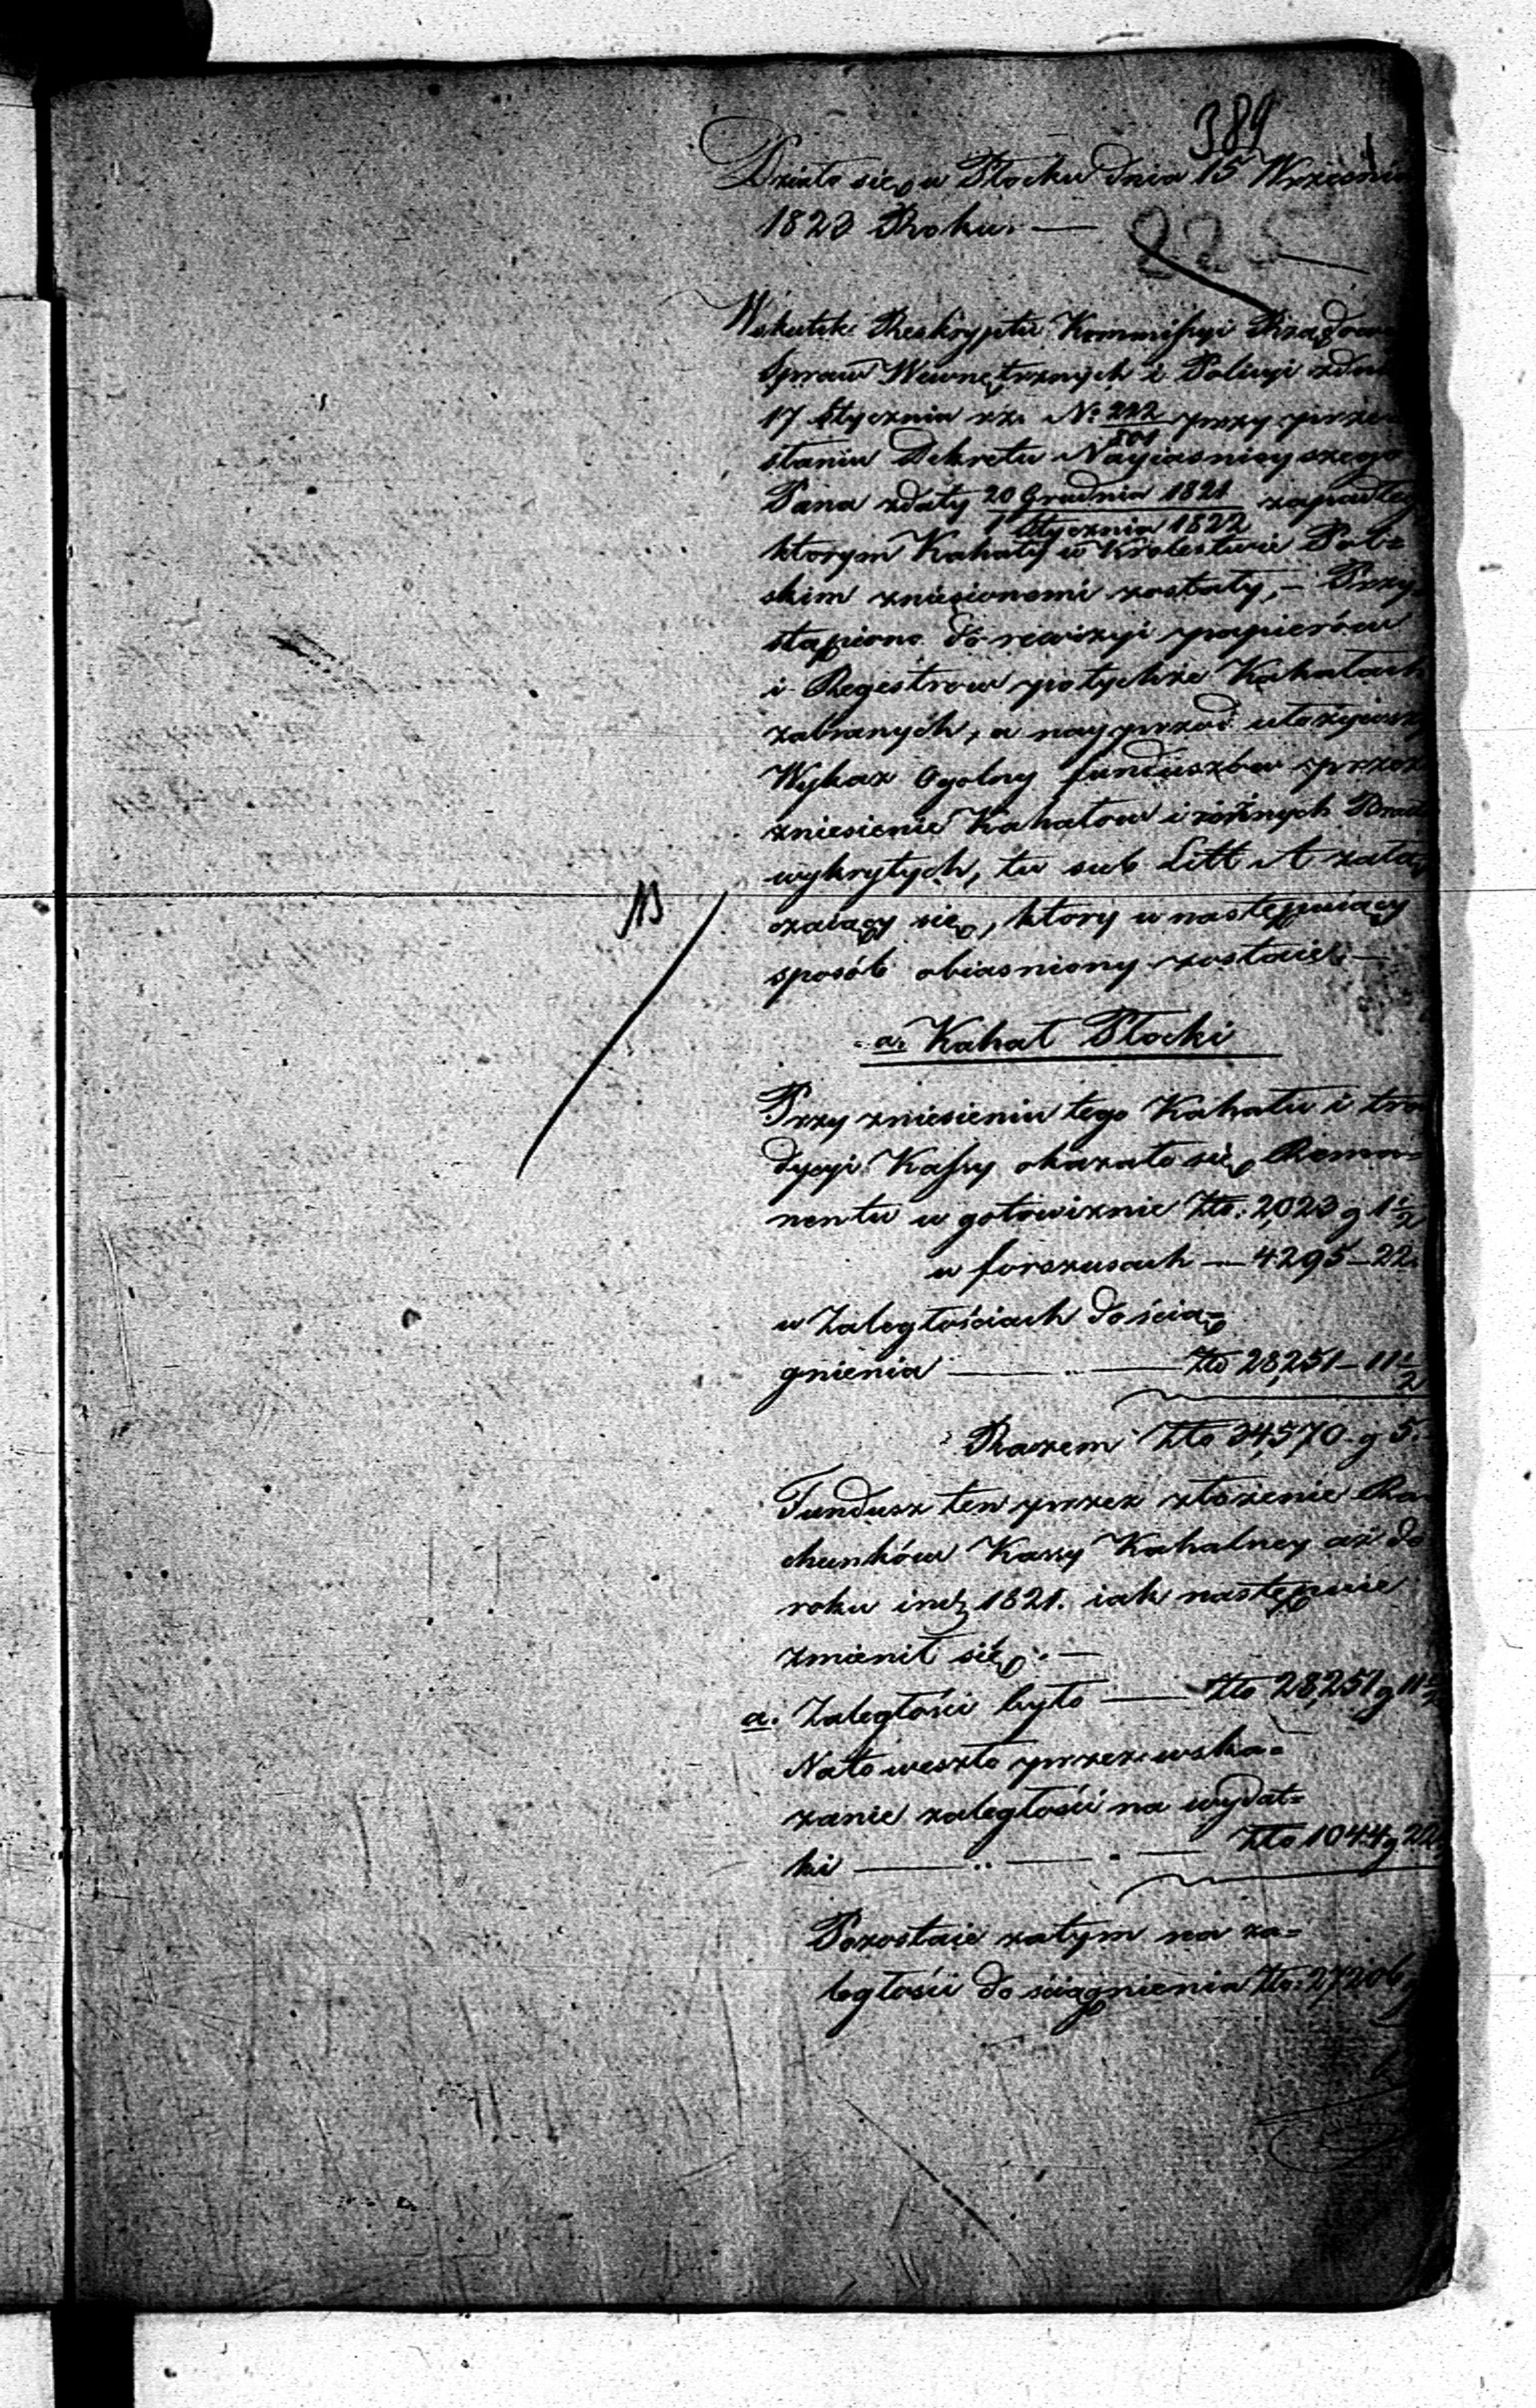 389
Działo się w Płocku dnia 15 Wrześnią
1823 Roku. —
225
Wskutek Reskryptu Kommissyi Rządow
Spraw Wewnętrznych i Policyi zdnia
17 Stycznia rz. No 222/801 przy prze
słaniu Dekretu Nayiasnieyszego
Pana zdaty 20 Grudnia 1821 / 1 Stycznia 1822 zapadłeg
ktorym Kahały w Krolestwie Pol=
skim zniesionemi zostały, — Przy
stąpiono do rewizyi papierów
i Regestrow potychże Kahałach
zabranych, a nayprzod ułożywszy
Wykaz Ogolny funduszów przez
zniesienie Kahałow i różnych Bract
wykrytych, tu sub Litt A załą
czaiący się, ktory w następuiący
sposób obiasniony zostaie. —
a. Kahał Płocki
Przy zniesieniu tego Kahału i tra
dycyi Kassy okazało się Rema=
nentu w gotowiznie Złto. 2,023 g 1 1/2
w forszusach — 4295 — 22.
w Zaległościach do ścią=
gnienia — złto 28,251 — 11 1/2
Razem Złto 34,570 g 5.
Fundusz ten przez złożenie Ra
chunków Kassy Kahalney aż do
roku incl 1821. iak następuie
zmienił się. —
a. Zaległości było — złto 28,251 g 11 1/2
Na to weszło przez wska=
zanie zaległości na wydat=
ki — Złto 1044 g 22
Pozostaie zatym na za=
ległości do ściągnienia Złto. 27206